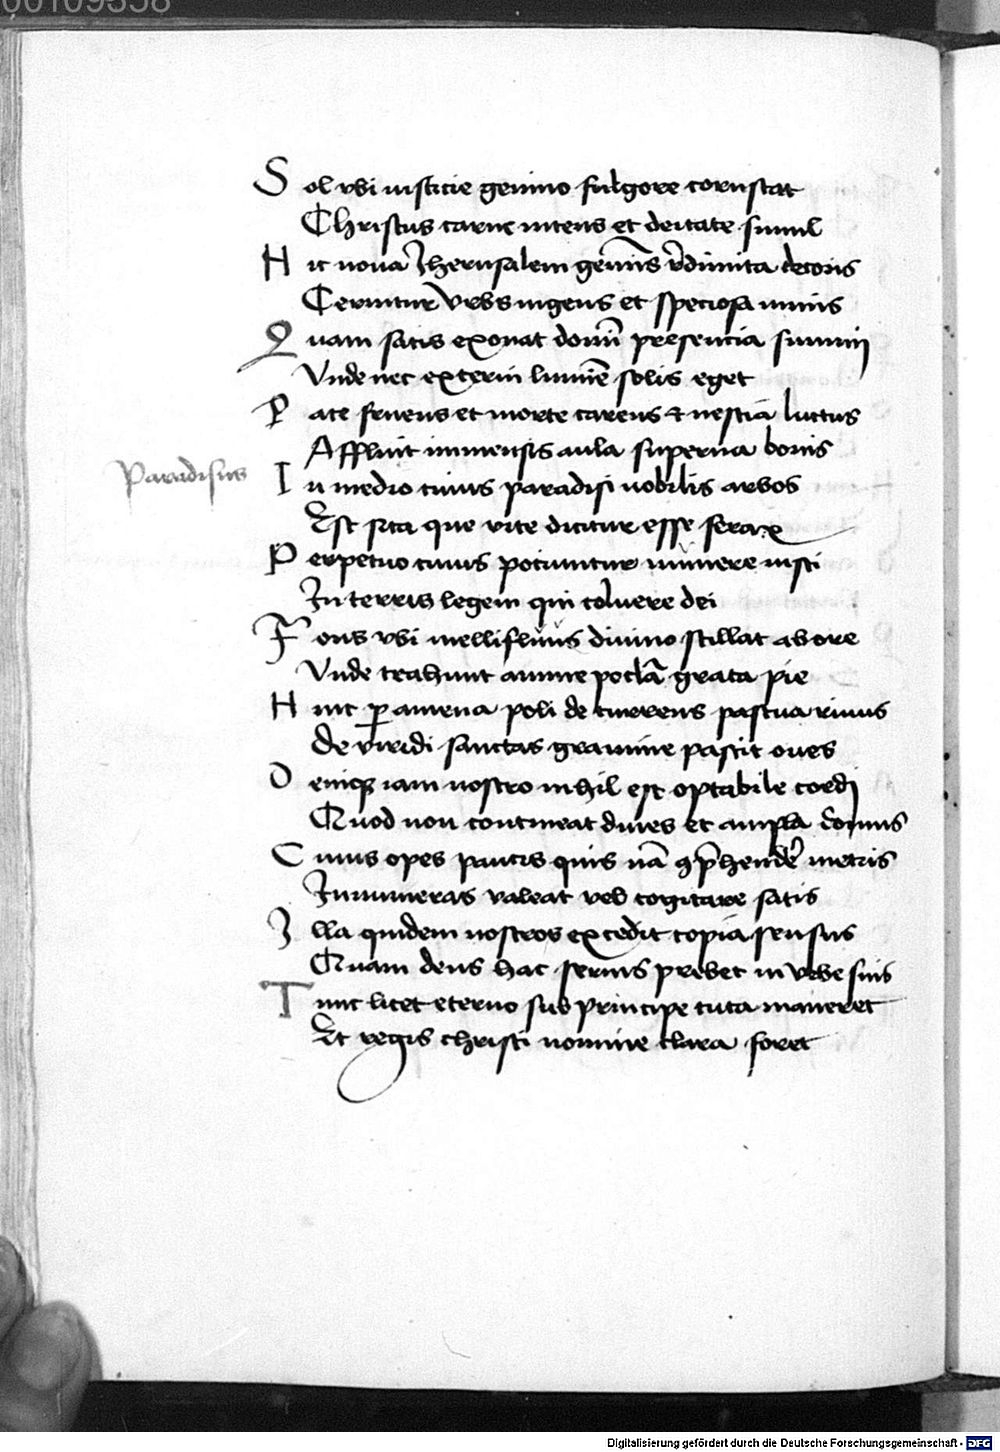 00109358
Sol vbi iusticie gemino fulgore coruscat
Christus carne nitens et deitate simul
Hic noua Jherusalem gemmis redimita decoris
Cernitur Vrbs ingens et speciosa nimis
Quam satis exonat domini presencia summi
Vnde nec externi lumine solis eget
Pace fruens et morte carens & nescia luctus
Affluit immensis aula superna bonis
Paradisus
In medio cuius paradisi nobilis arbos
Est sita que vite dicitur esse ferax
Perpetuo cuius potiuntur munere iusti
In terris legem qui coluere dei
Fons vbi mellifluus diuino stillat ab ore
Vnde trahunt anime pocla grata pie
Hinc per amena poli decurrens pascua riuus
De viridi sanctas gramine pascit oues
Denique iam nostro nihil est optabile cordi
Quod non contineat diues et ampla domus
Cuius opes paucis quis nam comprehendere metris
Innumeras valeat vel cogitare satis
Illa quidem nostros excedit copia sensus
Quam deus hac seruis prebet in vrbe suis
Tunc licet eterno sub principe tuta maneret
Et regis christi nomine clara foret
Digitalisierung gefördert durch die Deutsche Forschungsgemeinschaft - DFG